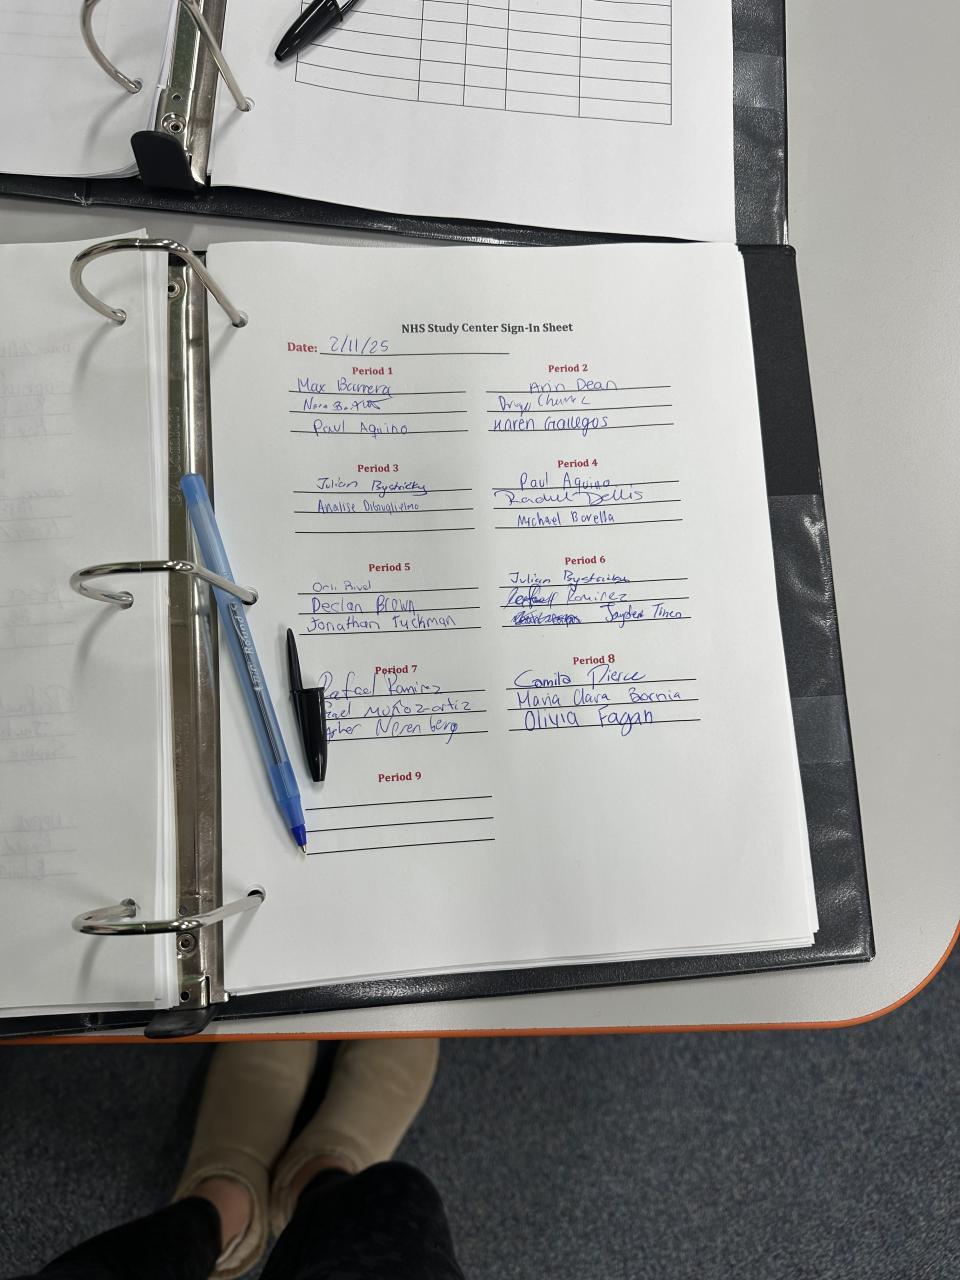 NHS Study Center Sign-In Sheet
Date: 2/11/25
Period 1
Max Barrera
Paul Aquino
Period 2
Arin Dean
Karen Gallegos
Period 3
Julian Bystricky
Analise DiGuglielmo
Period 4
Paul Aquino
Rachel Dellis
Michael Borella
Period 5
Declan Brown
Jonathan Tuckman
Period 6
Julian Bystricky
Rafael Ramirez
Jayden
Period 7
Rafael Ramirez
Muñoz-ortiz
Asher Nerenberg
Period 8
Camila Pierce
Maria Clara Bornia
Olivia Fagan
Period 9